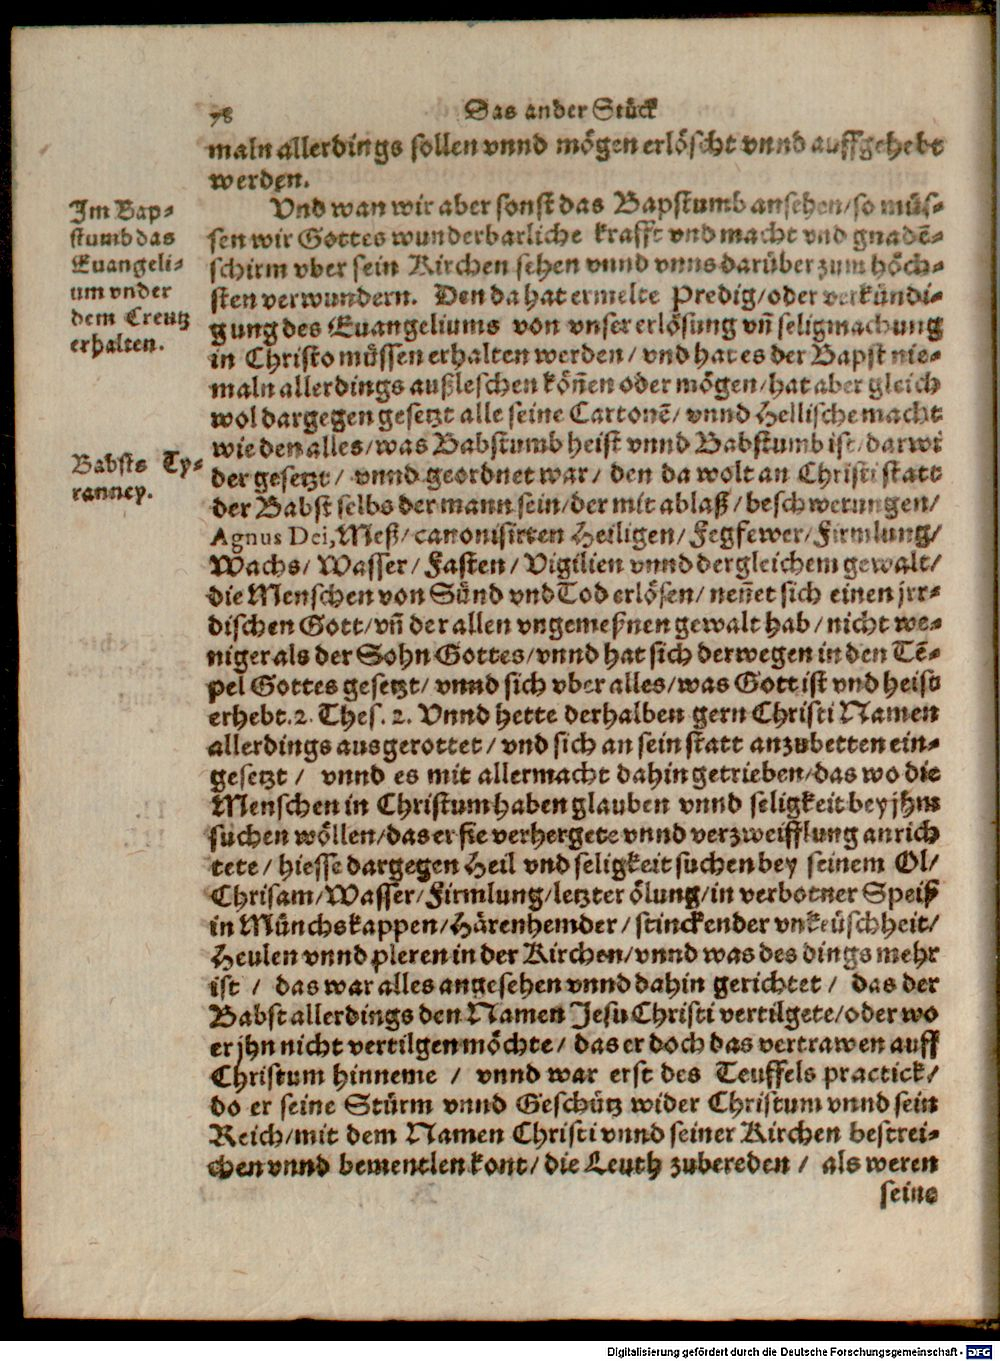 78
Das ander Stück
maln allerdings sollen vnnd mögen erlöscht vnnd auffgehebt
werden.
Vnd wan wir aber sonst das Bapstumb ansehen/so müs-
sen wir Gottes wunderbarliche krafft vnd macht vnd gnadē-
schirm vber sein Kirchen sehen vnnd vnns darüber zum höch-
sten verwundern. Den da hat ermelte Predig/oder verkündi-
gung des Euangeliums von vnser erlösung vñ seligmachung
in Christo müssen erhalten werden/ vnd hat es der Bapst nie-
maln allerdings außleschen köñen oder mögen/hat aber gleich
wol dargegen gesetzt alle seine Cartonē/ vnnd Hellische macht
wie den alles/was Babstumb heist vnnd Babstumb ist/darwi
der gesetzt/ vnnd geordnet war/ den da wolt an Christi statt
der Babst selbs der mann sein/der mit ablaß/beschwerungen/
Agnus Dei,Meß/canonisirten Heiligen/Fegfewer/Firmlung/
Wachs/ Wasser/ Fasten/ Vigilien vnnd dergleichem gewalt/
die Menschen von Sünd vnd Tod erlösen/ neñet sich einen jrr-
dischen Gott/vñ der allen vngemeßnen gewalt hab/ nicht we-
niger als der Sohn Gottes/vnnd hat sich derwegen in den Tē-
pel Gottes gesetzt/ vnnd sich vber alles/was Gott ist vnd heist
erhebt.2. Thes. 2. Vnnd hette derhalben gern Christi Namen
allerdings ausgerottet/ vnd sich an sein statt anzubetten ein-
gesetzt/ vnnd es mit allermacht dahin getrieben/das wo die
Menschen in Christum haben glauben vnnd seligkeit bey jhm
suchen wöllen/das er sie verhergete vnnd verzweifflung anrich
tete/ hiesse dargegen Heil vnd seligkeit suchen bey seinem Öl/
Chrisam/Wasser/Firmlung/letzter ölung/in verbotner Speiß
in Münchskappen/Härenhemder/ stinckender vnkeüschheit/
Heulen vnnd pleren in der Kirchen/vnnd was des dings mehr
ist/ das war alles angesehen vnnd dahin gerichtet/ das der
Babst allerdings den Namen Jesu Christi vertilgete/oder wo
er jhn nicht vertilgen möchte/ das er doch das vertrawen auff
Christum hinneme/ vnnd war erst des Teuffels practick/
do er seine Stürm vnnd Geschütz wider Christum vnnd sein
Reich/mit dem Namen Christi vnnd seiner Kirchen bestrei-
chen vnnd bementlen kont/die Leuth zubereden/ als weren
seine
Im Bap-
stumb das
Euangeli-
um vnder
dem Creutz
erhalten.
Babsts Ty-
ranney.
Digitalisierung gefördert durch die Deutsche Forschungsgemeinschaft - DFG